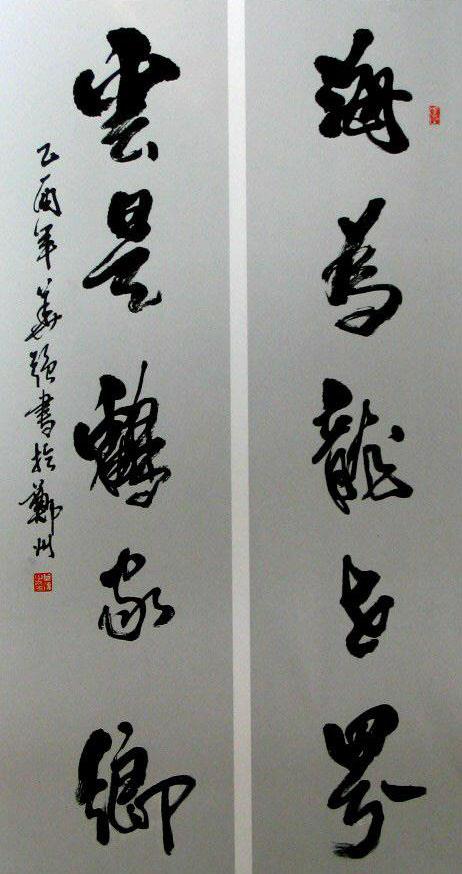 海為龍世界
雲是鶴家鄉
乙酉年姜強書於鄭州